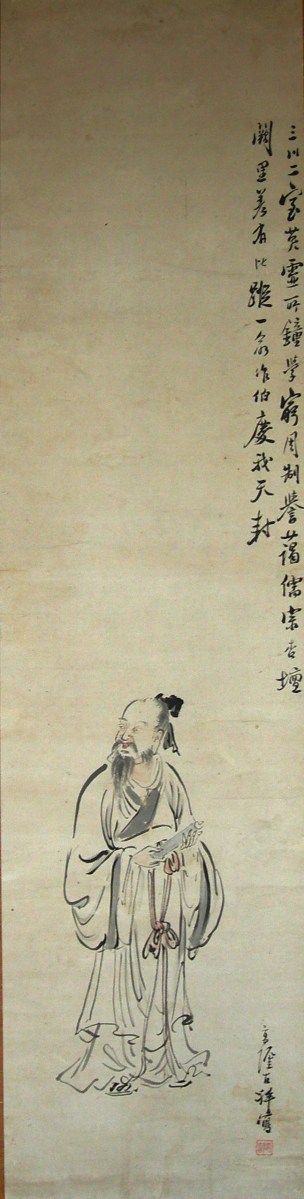 三川二室英靈所鐘學窮周制譽藹儒宗杏壇
闕里差肩比蹤一命作伯慶我天封
高隆古拜寫